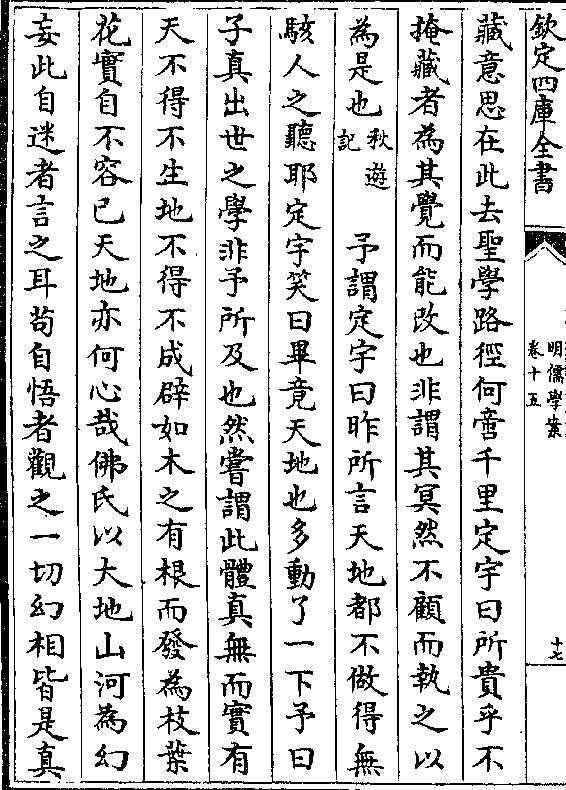 欽定四庫全書
明儒學案
卷十五
十七
藏意思在此去聖學路徑何啻千里定宇曰所貴乎不
掩藏者為其覺而能改也非謂其冥然不顧而執之以
為是也
秋遊
記
予謂定宇曰昨所言天地都不做得無
駭人之聽耶定宇笑曰畢竟天地也多動了一下予曰
子真出世之學非予所及也然嘗謂此體真無而實有
天不得不生地不得不成辟如木之有根而發為枝葉
花實自不容已天地亦何心哉佛氏以大地山河為幻
妄此自迷者言之耳茍自悟者觀之一切幻相皆是真